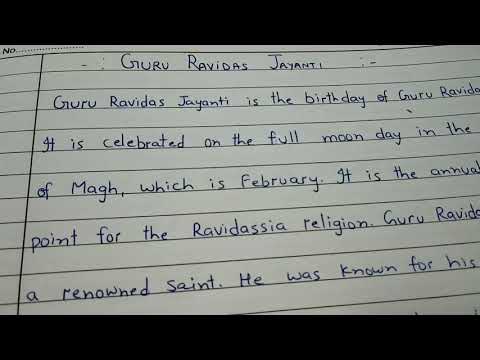 No.
-: GURU RAVIDAS JAYANTI :-
Guru Ravidas Jayanti is the birthday of Guru Ravida
It is celebrated on the full moon day in the
of Magh, which is February. It is the annual
point for the Ravidassia religion. Guru Ravida
a renowned saint. He was known for his